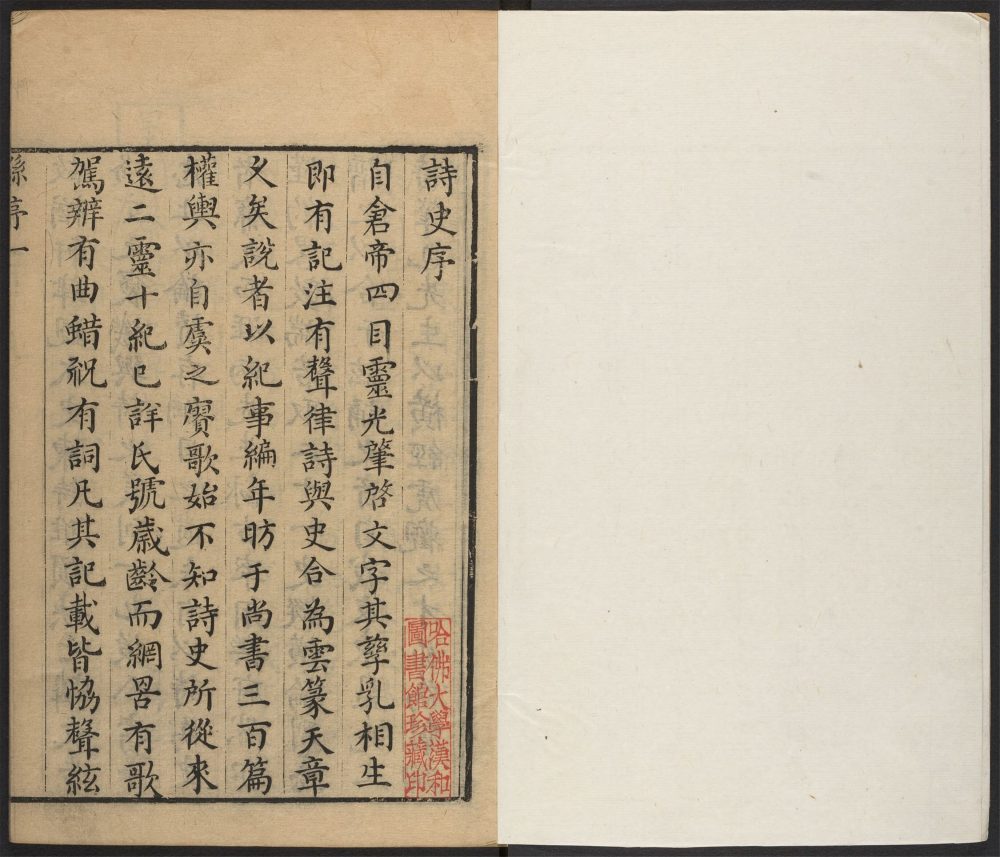 詩史序
自倉帝四目靈光肇啓文字其孳乳相生
即有記注有聲律詩與史合為雲篆天章
久矣說者以紀事編年昉于尚書三百篇
權輿亦自虞之賡歌始不知詩史所從來
遠二靈十紀已詳氏號歲齡而網罟有歌
駕辨有曲蜡祝有詞凡其記載皆恊聲絃
孫序一
哈佛大學漢和
圖書館珍藏印